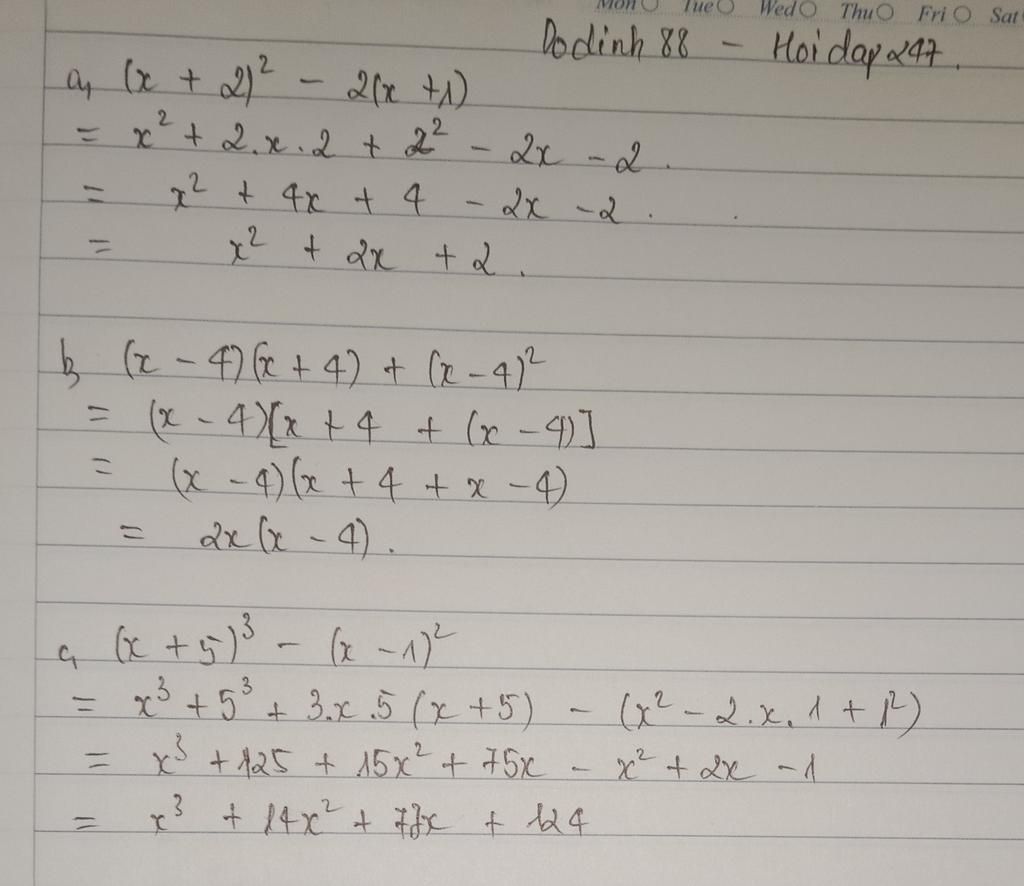 Mon Tue Wed Thu Fri Sat
Dodinh 88 - Hoidap247.
a, (x + 2)² - 2(x + 1)
= x² + 2.x.2 + 2² - 2x - 2.
= x² + 4x + 4 - 2x - 2.
= x² + 2x + 2.
b, (x - 4)(x + 4) + (x - 4)²
= (x - 4)[x + 4 + (x - 4)]
= (x - 4)(x + 4 + x - 4)
= 2x(x - 4).
c, (x + 5)³ - (x - 1)²
= x³ + 5³ + 3.x.5(x + 5) - (x² - 2.x.1 + 1²)
= x³ + 125 + 15x² + 75x - x² + 2x - 1
= x³ + 14x² + 77x + 124